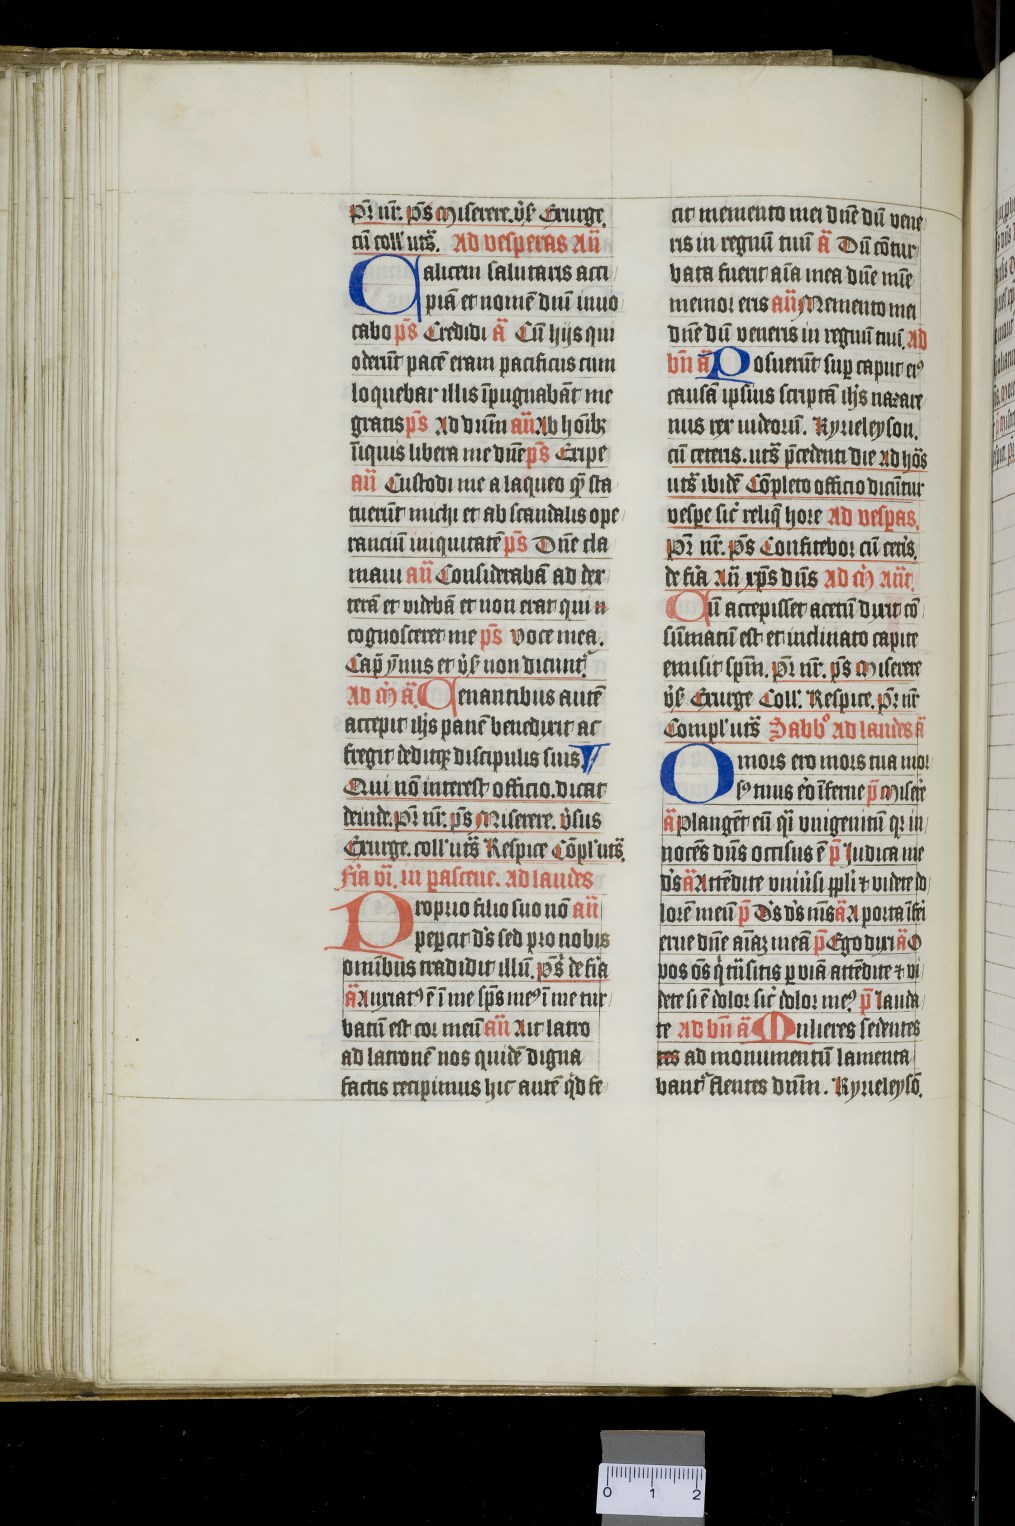 Pr̄ nr̄. ps̄ Miserere. v̉s̉ Exurge.
cū coll' uts̄. Ad vesperas An̄
Calicem salutaris acci
piā et nomē dn̄i invo
cabo ps̄ Credidi ā Cū hijs qui
oderūt pacē eram pacificus cum
loquebar illis īpugnabāt me
gratis ps̄ Ad dn̄m an̄ Ab hōibꝫ
īiquis libera me dn̄e ps̄ Eripe
an̄ Custodi me a laqueo qͫ̄ sta
tuerūt michi et ab scandalis ope
ranciū iniquitatē ps̄ Dn̄e cla
maui an̄ Considerabā ad dex
terā et videbā et non erat qui n
cognosceret me ps̄ voce mea.
Cap̄ ȳnus et v̉s̉ non dicunt᷑
Ad m̄ ā. Cenantibus autē
accepit ihs̄ panē benedixit ac
fregit deditqꝫ discipulis suis.
Qui nō interest officio. dicat
deinde. Pr̄ nr̄. ps̄ Miserere. v̉sus
Exurge. coll' uts̄ Respice Cōpl' uts̄.
fīa vī. in pasceue. Ad laudes
Proprio filio suo nō an̄
pepercit ds̄ sed pro nobis
omībus tradidit illū. ps̄ de fīa
ā Anxiatꝰ ē ī me sps̄ meꝰ ī me tur
batū est cor meū an̄ Ait latro
ad latronē nos quidē digna
factis recipimus hic autē qͥd fe
cit memento mei dn̄e dū vene
ris in regnū tuū ā Dū cōtur
bata fuerit aīa mea dn̄e mīe
memor eris an̄ Memento mei
dn̄e dū veneris in regnū tuū. Ad
bn̄ ā Posuerūt sup̄ caput eiꝰ
causā ipsius scriptā ihs̄ nazare
nus rex iudeorū. Kyrieleyson.
cū ceteris. uts̄ p̄cedenti die Ad hōs
uts̄ ibidē Cōpleto officio dicūtur
vespe sic̄ reliq̄ hore Ad vespas.
Pr̄ nr̄. ps̄ Confitebor cū cet̄is.
de fīa An̄ xps̄ dn̄s Ad m̄ An̄t.
Cū accepisset acetū dixit cō
sūmatū est et inclinato capite
emisit spm̄. Pr̄ nr̄. ps̄ Miserere
v̉s̉ Exurge Coll. Respice. Pr̄ nr̄
Compl' uts̄ Sabbͦ Ad laudes ā
O mors ero mors tua mor
sꝰ tuus ero īferne p̄ Miserē
ā Plangēt eū qͣ̄i vnigenitū qꝛ in
nocēs dn̄s occisus ē p̄ Judica me
ds̄ ā Attēdite vniūsi ppl̄i ⁊ videte do
lorē meū p̄ Ds̄ ds̄ m̄s ā A porta īferi
erue dn̄e aīaꝫ meā p̄ Ego dixi ā O
vos ōs qͥ trāsitis p viā attēdite ⁊ vi
dete si ē dolor sic̄ dolor meꝰ p̄ lauda
te Ad bn̄ ā Mulieres sedentes
tes ad monumentū lamenta
bant᷑ flentes dn̄m. Kyrieleysō.